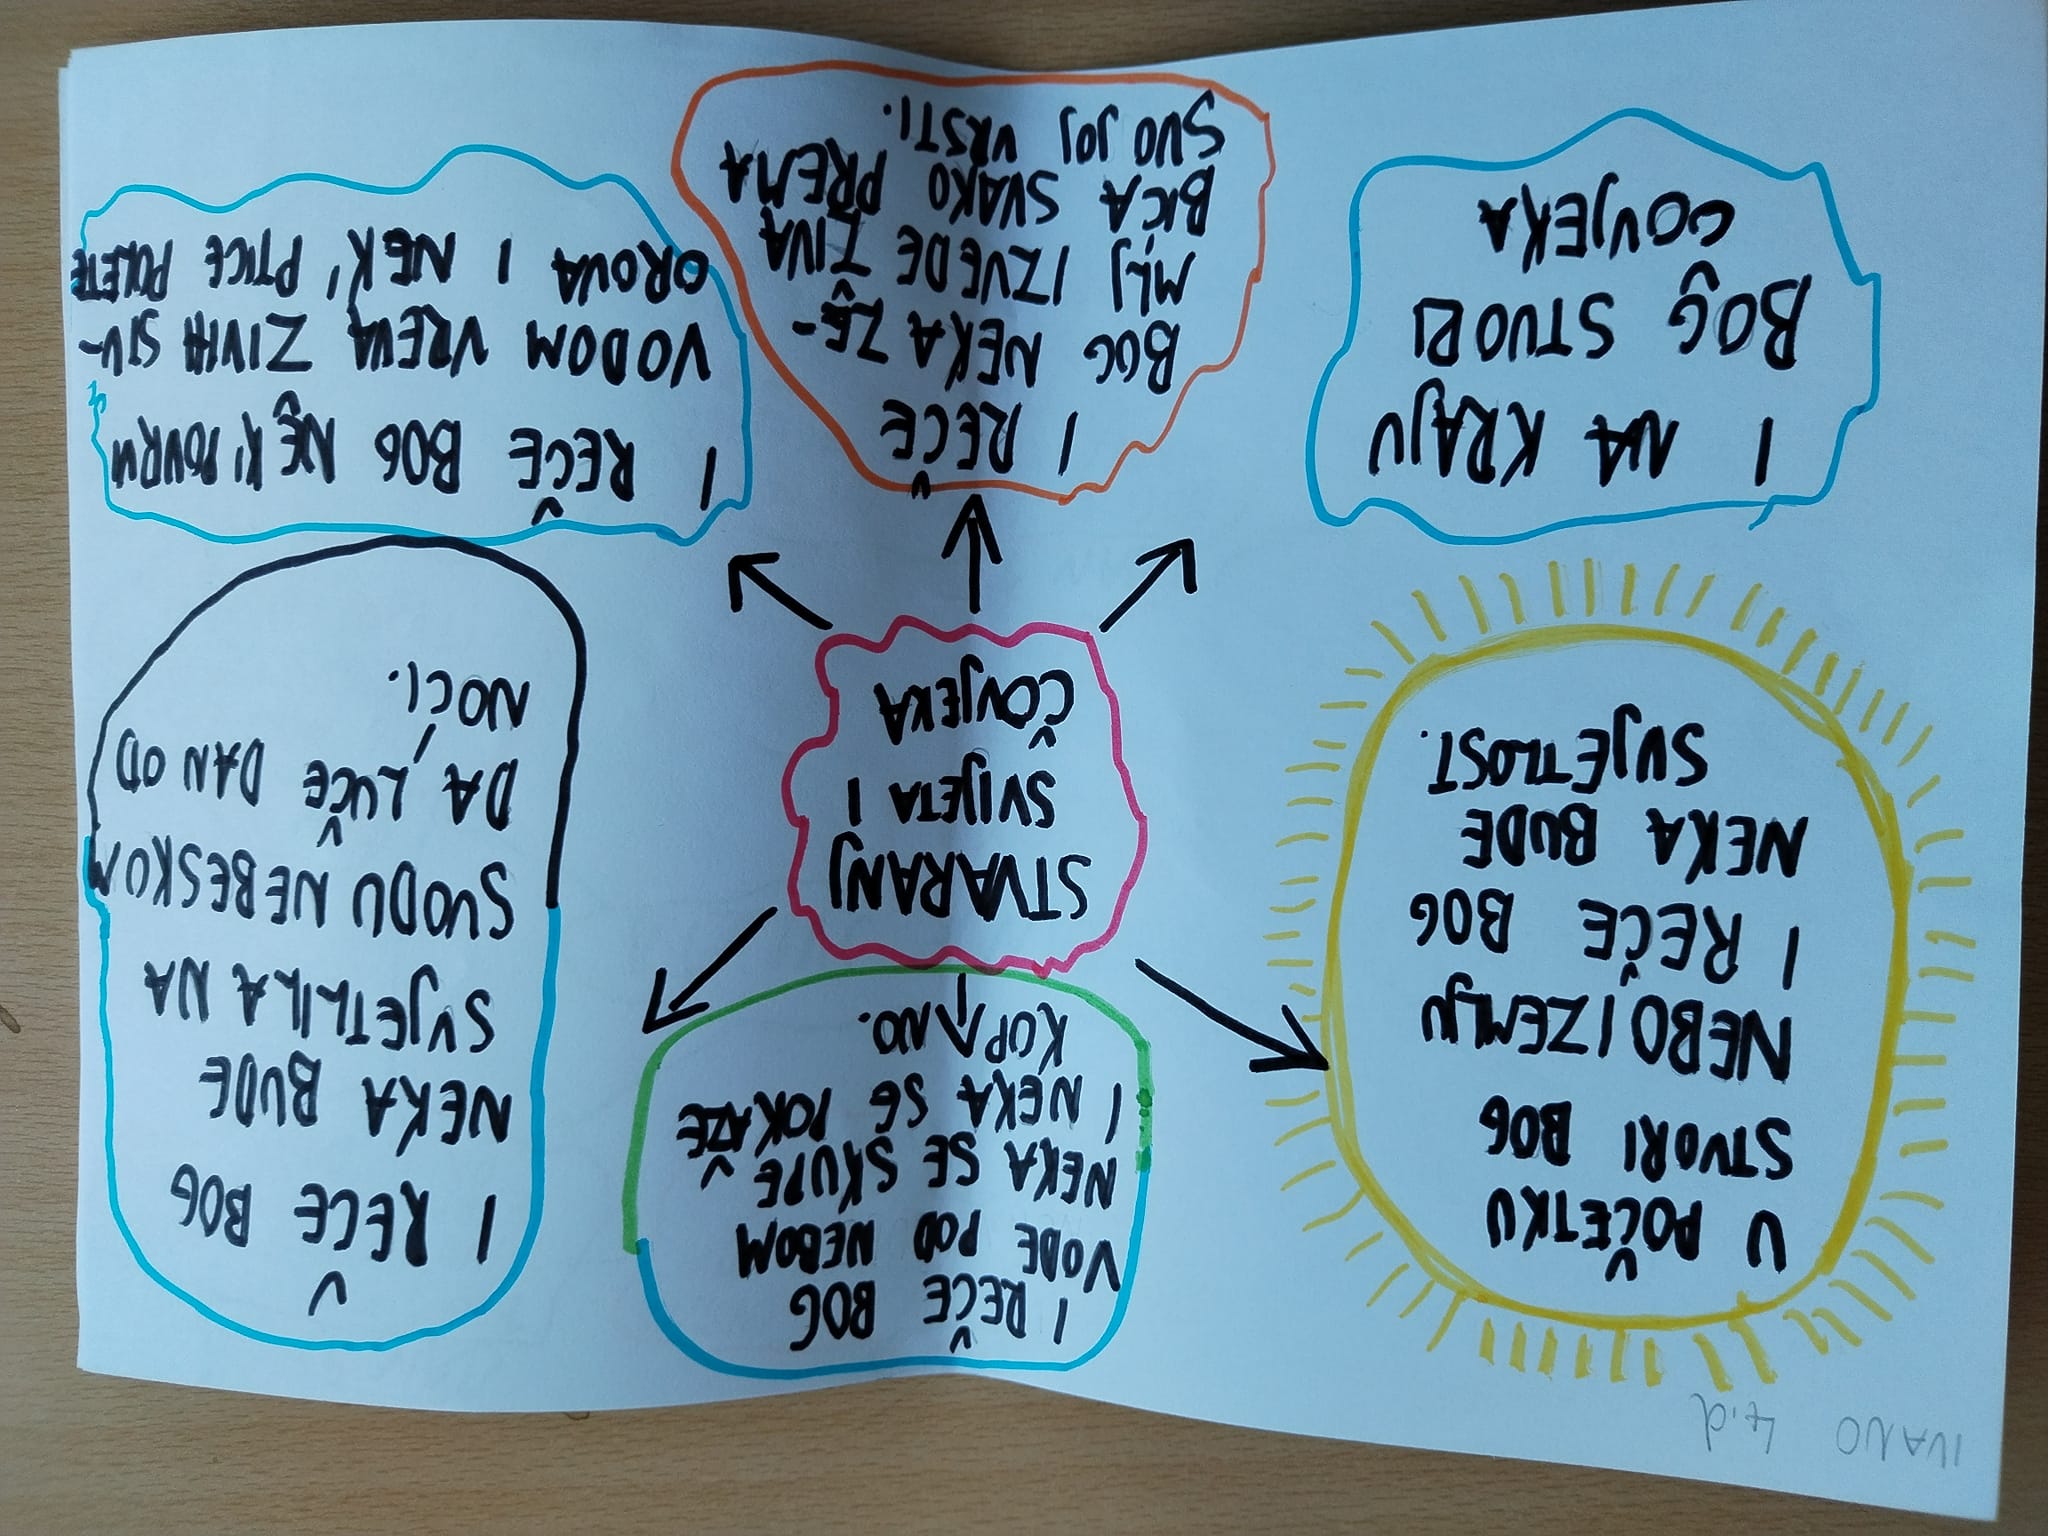 IVANO 4.d
U POČETKU
STVORI BOG
NEBO I ZEMLJU
I REČE BOG
NEKA BUDE
SVJETLOST.
I REČE BOG
VODE POD NEBOM
NEKA SE SKUPE
I NEKA SE POKAŽE
KOPNO.
I REČE BOG
NEKA BUDE
SVJETLILA NA
SVODU NEBESKOM
DA LUČE DAN OD
NOĆI.
STVARANJ
SVIJETA I
ČOVJEKA
I NA KRAJU
BOG STVORI
COVJEKA
I REČE
BOG NEKA ZE-
MLJ IZVEDE ŽIVA
BIĆA SVAKO PREMA
SVOJOJ VRSTI.
I REČE BOG NEK' POVRH
VODOM VREVA ŽIVIH STV-
OROVA I NEK' PTICE POLETE